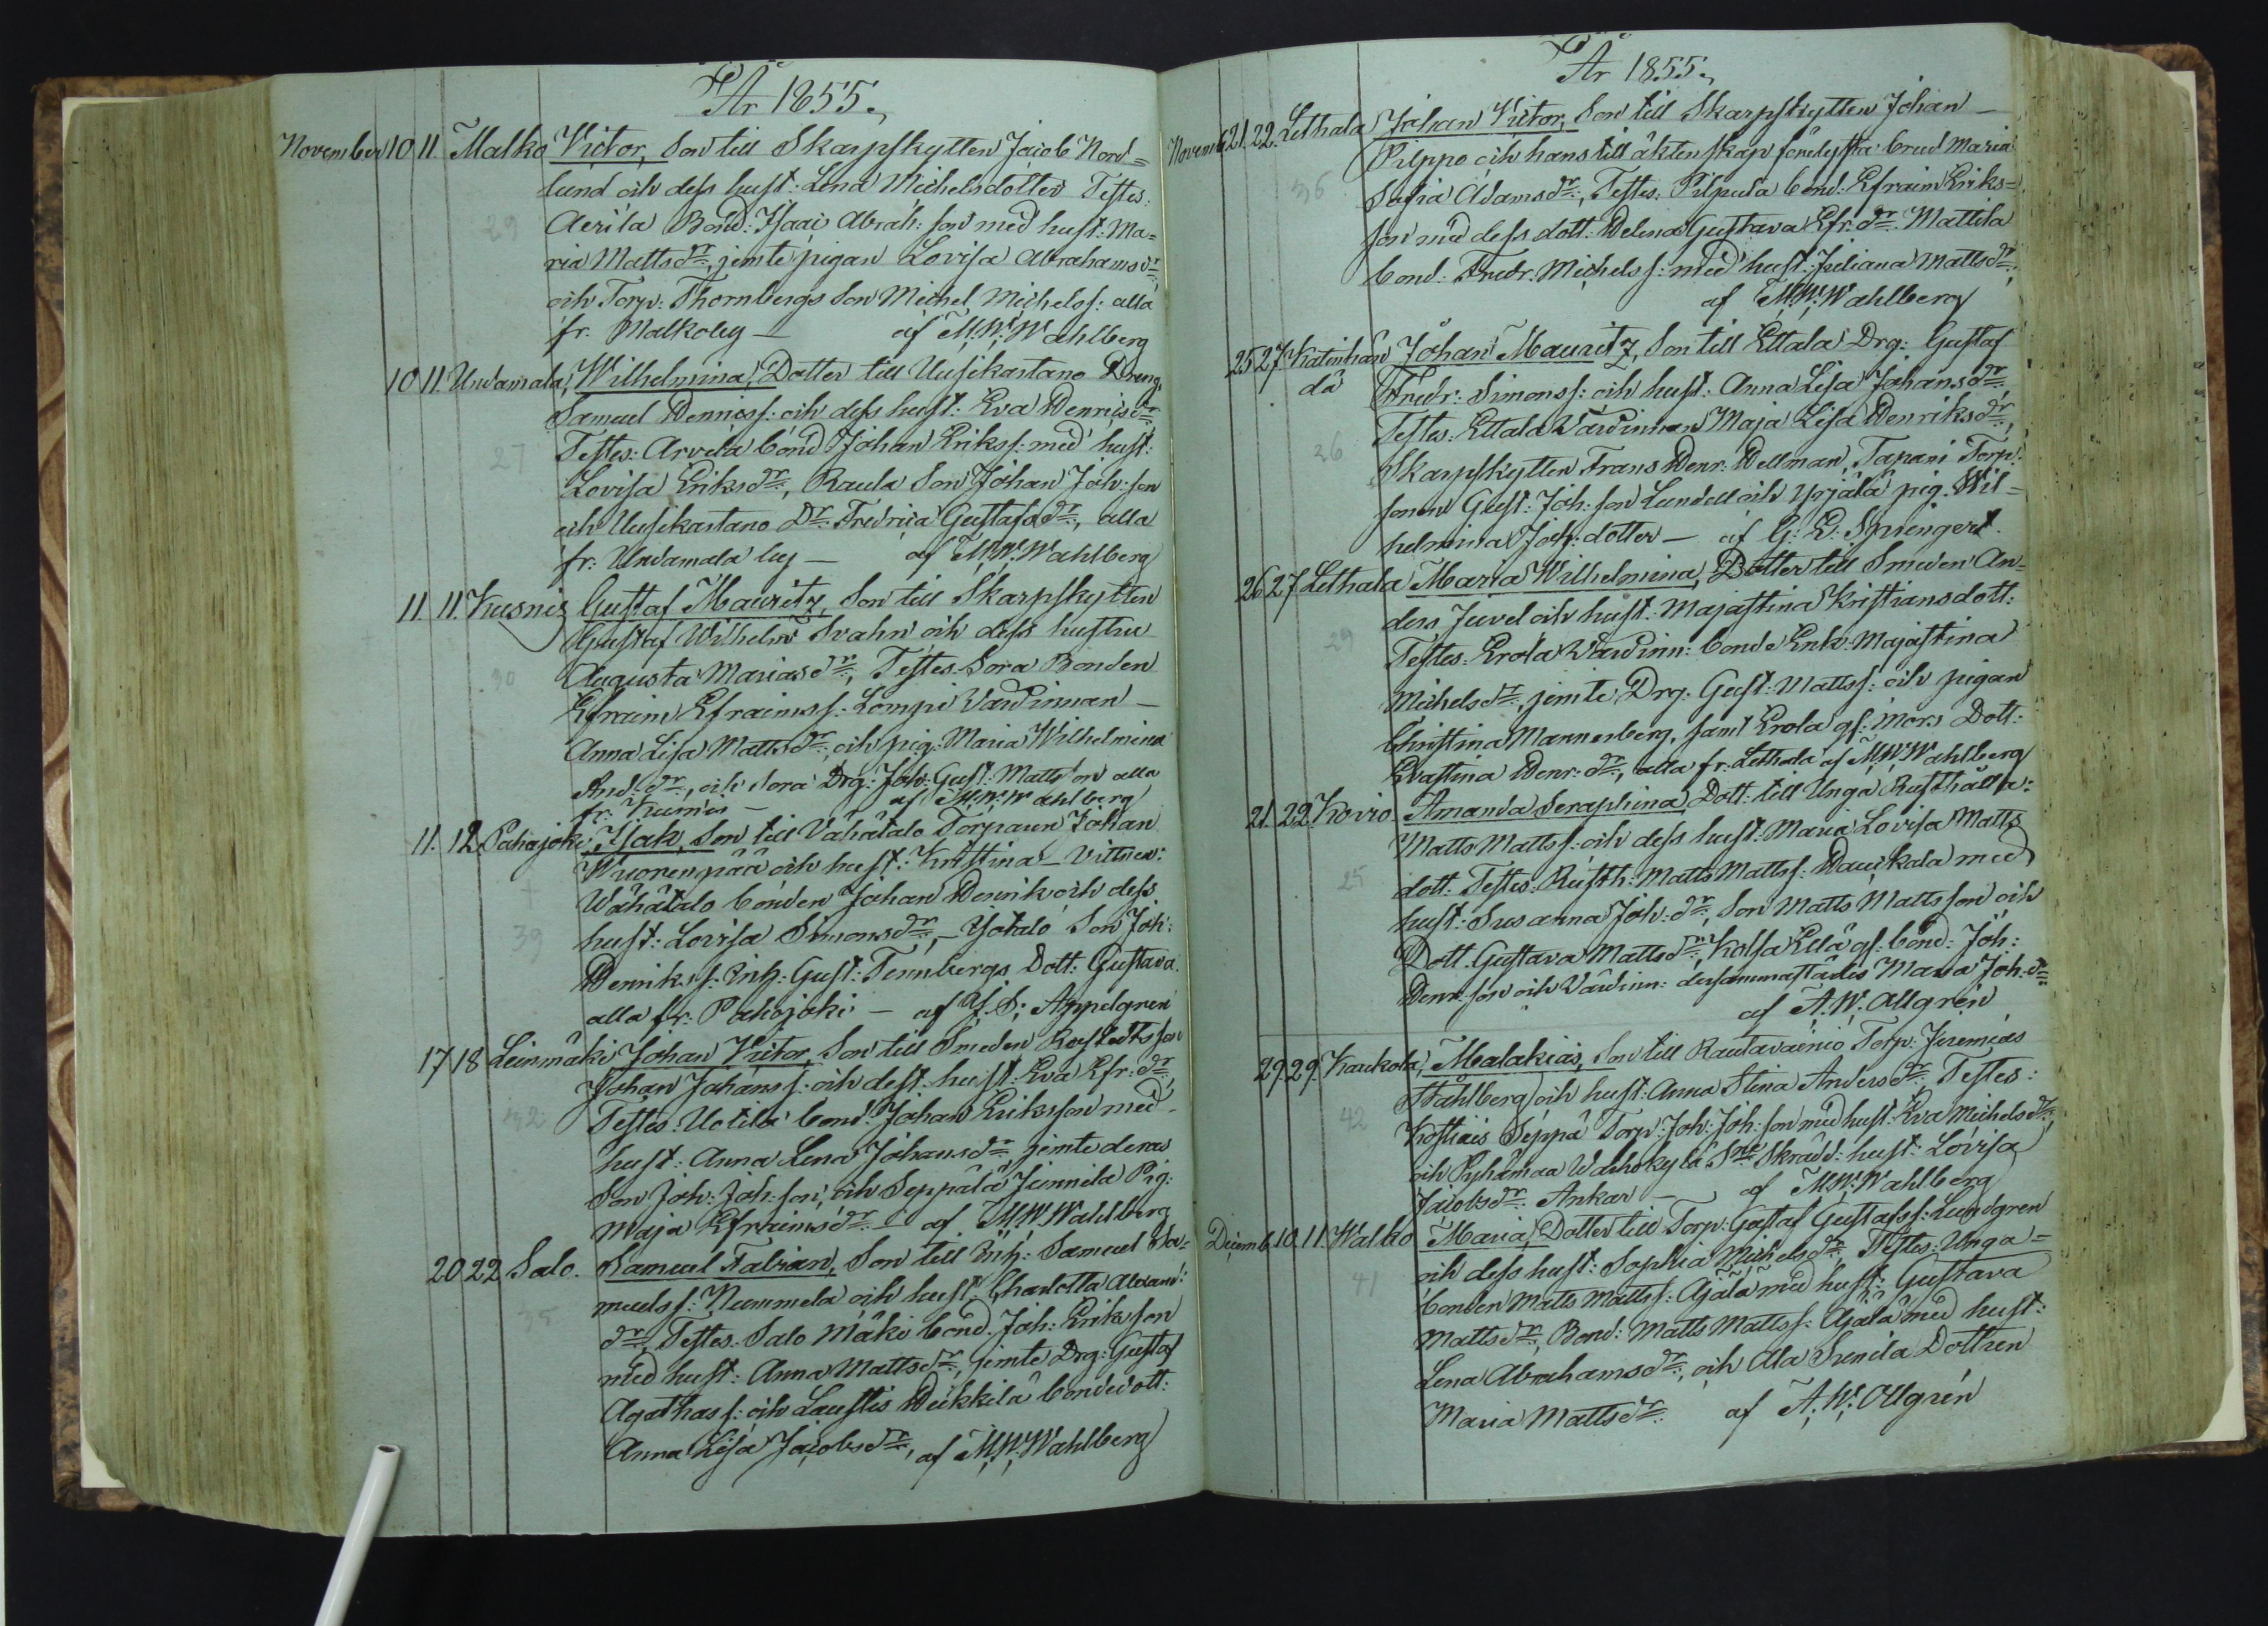 År 1855.
November 10 11 Malko Victor, Son till Skarpskytten Jacob Nord=
lund och dess hust: Lena Michelsdotter Testes:
29 Aerila Bond: Isaac Abrah: son med hust: Ma=
ria Mattsdr:, jemte pigan Lovisa Abrahamsdr:
och Torp: Thornbergs Son Michel Michelss: alla
fr. Malko by — af M. W. Wahlberg
10 11 Undamala, Wilhelmina, Dotter till Uusikartano Dreng.
Samuel Henricss: och dess hust: Eva Henricsdr:
27 Testes: Arvela bond Johan Erikss: med hust:
Lovisa Eriksdr:, Raula Son Johan Joh: son
och Uusikartano Dr: Fredrica Gustafsdr:, alla
fr: Undamala by — af M. W. Wahlberg
11. 11. Kusnis Gustaf Mauritz, Son till Skarpskytten
Gustaf Wilhelm Svahn och dess hustru
30 Augusta Mariasdr:, Testes. Sora Bonden
Efraim Efraimss: Lompi Värdinnan —
Anna Lisa Mattsdr:, och pig: Maria Wilhelmina
And: dr:, och Sora Drg: Joh: Gust: Matts'on alla
fr: — af M. W. Wahlberg
11. 12. Pahajoki, Isak, Son till Vähätalo Torparen Johan
Wuorenpää och hust: Kristina — Vittnen:
Wähätalo bonden Johan Henrik och dess
39 hust: Lovisa Simonsdr:, — Isotalo Son Joh:
Henrikss: Inh: Gust: Tennbergs Dott: Gustava.
alla fr: Pahojoki — af Appelgren
17 18 Leinmäki Johan Victor, Son till Smeden Rostedts son
Johan Johanss: och dest: hust: Eva Efr: dr:,
32 Testes. Uotila bond: Johan Eriksson med
hust: Anna Lena Johansdr:, jemte deras
Son Joh: Joh: son, och Seppälä Junnila Pig:
Maja Efraimsdr: — af M. W. Wahlberg
20 22 Salo. Samuel Fabian, Son till Inh: Samuel Sa=
muelss: Nummela och hust: Charlotta Alexand:
35 dr:, Testes. Salo Mäki bond. Joh: Eriksson
med hust: Anna Mattsdr:, jemte Drg: Gustaf
Agathass: och Laustis Heikkilä bondedott:
Anna Lisa Jacobsdr:, af M. W. Wahlberg
År 1855.
Novemb 21. 22. Lethala Johan Victor, Son till Skarpskytten Johan —
Pilppo, och hans till äktenskap förelysta brud Maria
36 Sofia Adamsdr:, Testes: Pilpula bond: Efraim Eriks=
son med dess dott: Helena Gustava Efr: dr: Mattila
bond: Fredr: Michelss: med hust: Juliana Mattsdr:,
af M. W. Wahlberg
25 27 Katinhän Johan Mauritz, Son till Ettala Drg: Gustaf
dä Fredr: Simonss: och hust: Anna Lisa Johansdr:
Testes: Ettala Värdinnan Maja Lisa Henriksdr:,
26 Skarpskytten Frans Henr: Hellman, Tapani Torp:
sonen Gust: Joh: son Lundell och Yrjälä pig. Wil=
helmina Joh: dotter — af G. E. Springert.
26 27 Lethala Maria Wilhelmina, Dotter till Smeden An=
ders Juvel och hust: Majastina Kristiansdott:
29 Testes: Erola Värdinn: bonde Enk: Majastina
Michelsdr:, jemte Drg: Gust: Mattss: och pigan
Christina Mannerberg, samt Erola gl: mor:s Dott:
Evastina Henr: dr:, alla fr: Lethala af M. W. Wahlberg
21. 22. Kovio Amanda Seraphina, Dott: till Unga Rusthålla:
Matts Mattss: och dess hust: Maria Lovisa Matts
25 dott: Testes: Rusth: Matts Mattss: Haukala med
hust: Susanna Joh: dr:, Son Matts Mattsson och
Dott. Gustava Mattsdr:, Kolsa Ellä gl: bond: Joh:
Henr: son och Värdinn: dersammastädes Maria Joh: dr:
af A. W. Allgrén
29. 29. Kaukola, Malakias, Son till Rautavainio Torp: Jeremias
Ståhlberg och hust: Anna Stina Andersdr:, Testes:
42 Kostiais Seppä Torp: Joh: Joh: son med hust: Eva Michelsdr:,
och Pyhämaa Wachokylä Skrädd: hust: Lovisa
Jacobsdr: Ankar — af M. W. Wahlberg
Decemb 10. 11 Walko Maria, Dotter till Torp: Gustaf Gustafss: Lundgren
och dess hust: Sophia Michelsdr:, Testes: Unga=
41 bonden Matts Mattss: Ajala med hust: Gustava
Mattsdr:, Bond: Matts Mattss: Ajala med hust:
Lena Abrahamsdr:, och Ala Sunila Dottren
Maria Mattsdr: af A. W. Allgrén